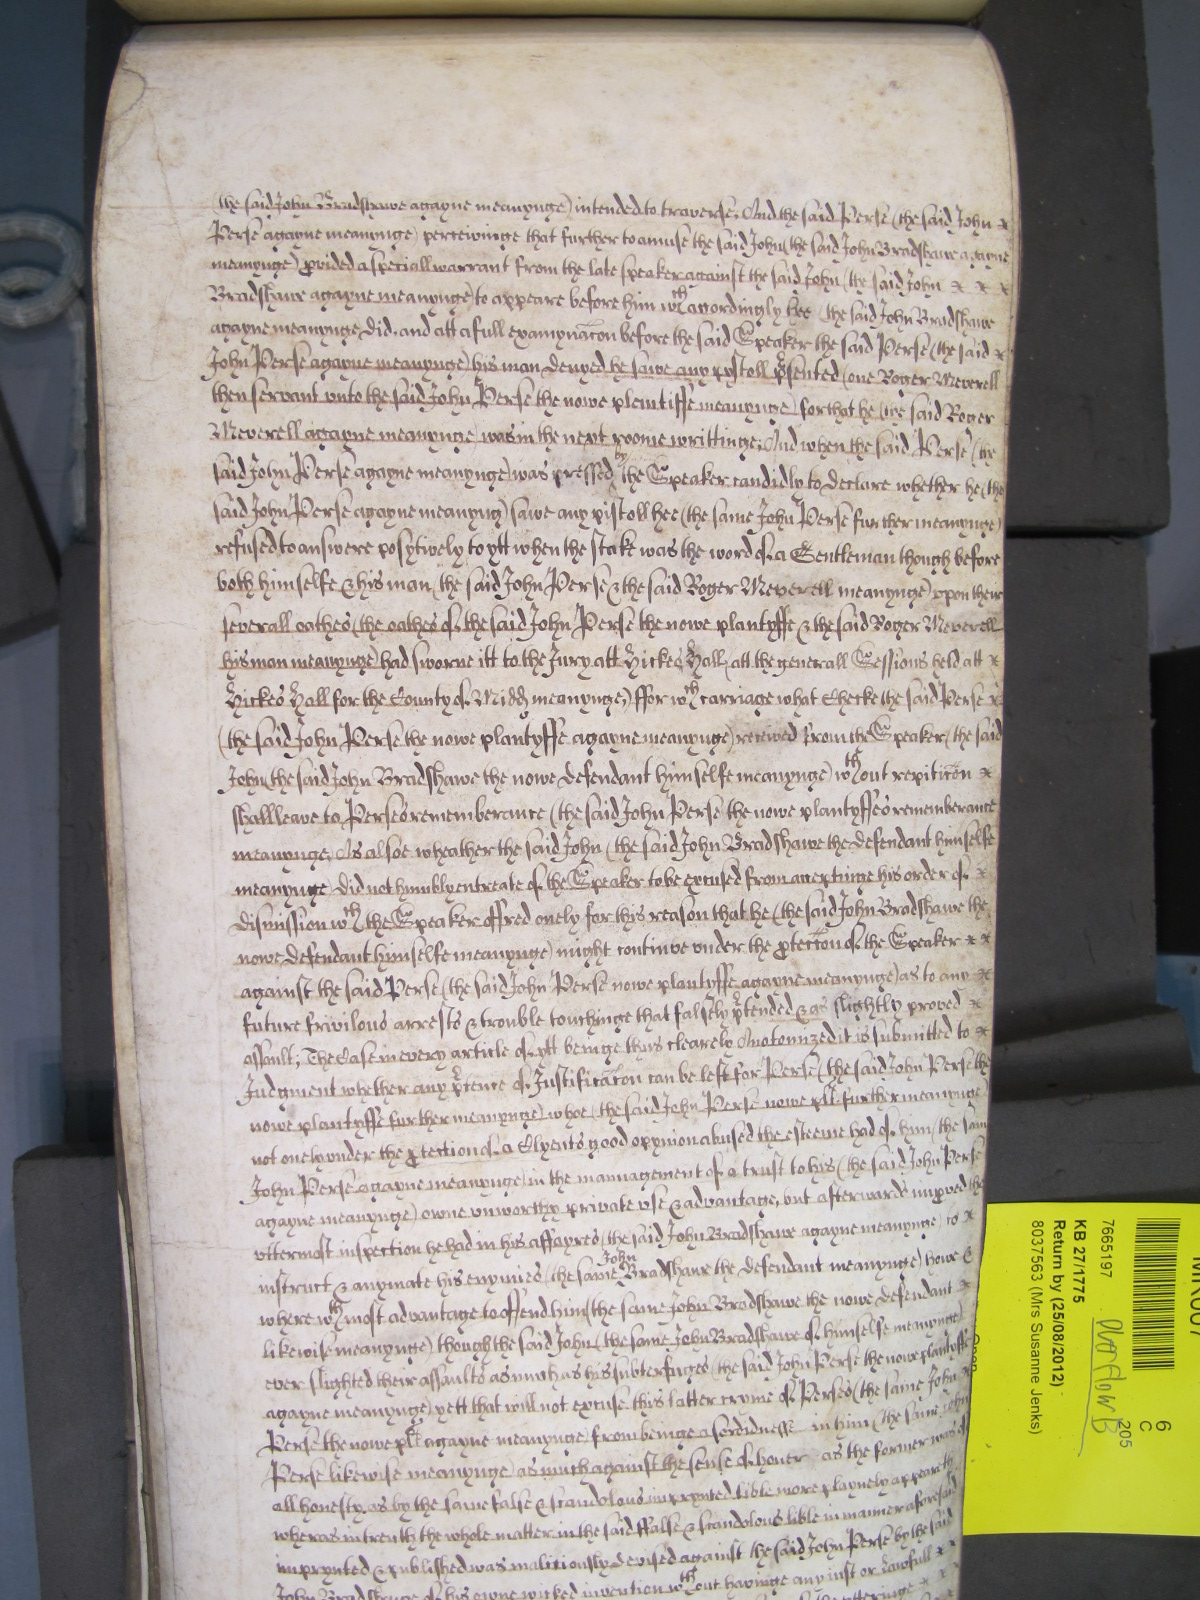 (the said John Bradshawe agayne meanynge) intended to traverse. And the said Perse (the said John
Perse agayne meanynge) perceivinge that further to amuse the said John (the said John Bradshawe agayne
meanynge) pvided a speciall warrant from the late speaker against the said John (the said John
Bradshawe agayne meanynge) to appeare before him wth accordingly hee (the said John Bradshawe
agayne meanynge did. and att a full examynacon before the said Speaker the said Perse (the said
John Perse agayne meanynge) his man denyed he sawe any pystoll psented (one Roger Meverell
then servant unto the said John Perse the nowe plentiffe meanynge) for that he (the said Roger
Meverell agayne meanynge) was in the next roome writtinge. And when the said Perse (the
said John Perse agayne meanynge) was pressed by the Speaker candidly to declare whether he (the
said John Perse agayne meanyng) sawe any pistoll hee (the same John Perse further meanynge)
refused to answere posytively to ytt when the stake was the word of a Gentleman though before
both himselfe & his man (the said John Perse & the said Roger Meverell meanynge) upon their
severall oathes (the oathes of the said John Perse the nowe plantyffe & the said Roger Meverell
his man meanynge) had sworne itt to the Jury att Hickes Hall (att the generall Sessions held att
Hickes Hall for the County of Midd meanynge,) ffor wth carriage what Checke the said Perse
(the said John Perse the nowe plantyffe agayne meanynge) received from the Speaker (the said
John (the said John Bradshawe the nowe defendant himselfe meanynge) wthout repiticon
shall leave to Perses rememberance (the said John Perse the nowe plantyffes rememberance
meanynge, As alsoe wheather the said John (the said John Bradshawe the defendant himselfe
meanynge) did not humbly entreate of the Speaker to be excused from acceptinge his order of
dismission wth the Speaker offred onely for this reason that he (the said John Bradshawe the
nowe defendant himselfe meanynge) might continue under the pteccon of the Speaker
against the said Perse (the said John Perse nowe plantyffe agayne meanynge) as to any
future frivilous arrests & trouble touchinge that falsely ptended & as slightly proved
assault; The Case in every article of ytt beinge thus clearely Anotomized it is submitted to
Judgment whether any ptence of Justificacon can be left for Perse (the said John Perse the
nowe plantyffe further meanynge) whoe (the said John Perse nowe plt further meanynge)
not onely under the ptection of a Clyents good opynion abused the esteeme had of him (the said
John Perse agayne meanynge) in the mannagement of a trust to his (the said John Perse
agayne meanynge) owne unworthy private use & advantage, but afterwards improved the
uttermost inspection he had in his affayres (the said John Bradshawe agayne meanynge) to
instruct & anymate his enymies (the same John Bradshawe the defendant meanynge) howe &
where wth most advantage to offend him (the same John Bradshawe the nowe defendant
likewise meanynge) though the said John (the same John Bradshawe of himselfe meanynge)
ever slighted their assaults as much as his subterfuges (the said John Perse the nowe plantyffe
agayne meanynge) yett that will not excuse this latter cryme of Perses (the same John
Perse the nowe plt agayne meanynge) from beinge a sordidnesse in him (the same John
Perse likewise meanynge) as much against the sense of honer, as the former was of
all honesty, as by the same false & scandolous imprynted lible more playnely appeareth
wheras in treuth the whole matter in the said ffalse & scandolous lible in manner aforesaid
imprynted & published was malitiously devised against the said John Perse by the said
John Bradshawe of his owne wicked invention wthout havinge any just or lawfull
7665197
KB 27/1775
Return by (25/08/2012)
8037563 (Mrs Susanne Jenks)
6
C
205